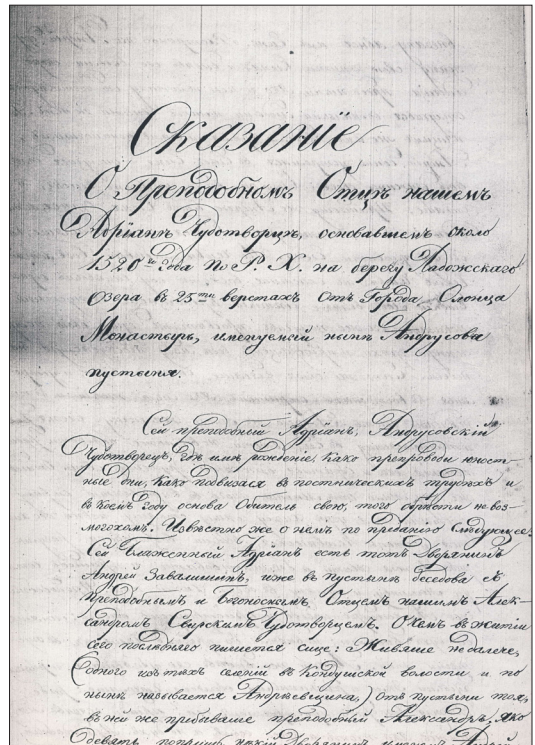 Сказаніе
О Преподобномъ Отцѣ нашемъ
Адріанѣ Чудотворцѣ, основавшемъ около
1520го Года по Р. Х. на берегу Ладожскаго
Озера въ 25ти верстахъ отъ Города Олонца
Монастырь, именуемый нынѣ Андрусова
пустыня.
Сей преподобный Адріанъ, Андрусовскій
Чудотворецъ, гдѣ имѣ рожденіе, како препроводи юност-
ные дни, како подвизася въ постническихъ трудѣхъ и
въ коемъ году основа Обитель свою, того обрѣсти не воз-
могохомъ. Извѣстно же о немъ по преданію слѣдующее:
Сей Блаженный Адріанъ есть тотъ Дворянинъ
Андрей Завалишинъ, иже въ пустынѣ бесѣдова съ
Преподобнымъ и Богоноснымъ Отцемъ нашимъ Алек-
сандромъ Свирскимъ Чудотворцемъ. О чемъ въ житіи
сего послѣдняго пишется сице: Живяше недалече,
(одного изъ тѣхъ селеній въ Кондушской волости и по
нынѣ называется Андреевщина,) отъ пустыни тоя,
въ ней же пребываше преподобный Александръ, яко
девять поприщъ нѣкій Дворянинъ